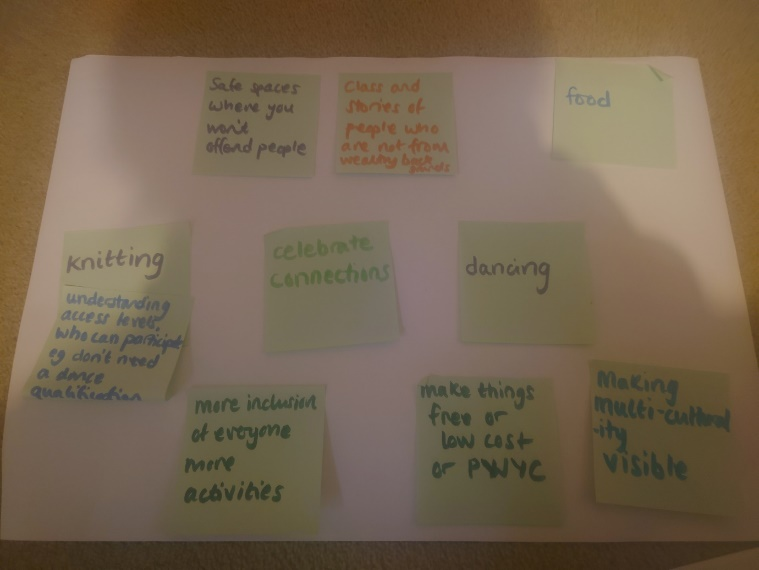 Safe spaces
where you
won't
offend people
Class and
stories of
people who
are not from
wealthy back
grounds
food
knitting
understanding
access levels,
who can participate
eg don't need
a dance
qualification
celebrate
connections
dancing
more inclusion
of everyone
more
activities
make things
free or
low cost
or PWYC
Making
multi-cultural
-ity
visible